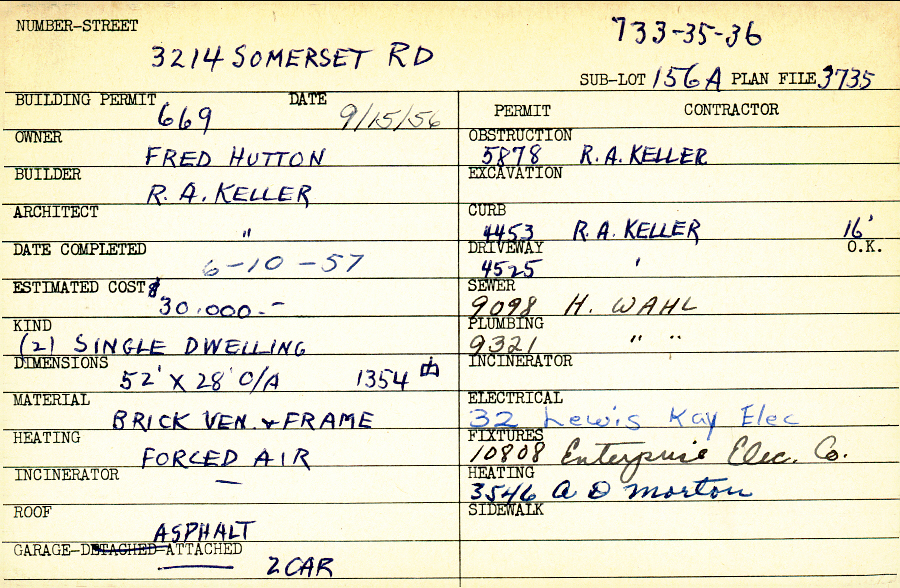 NUMBER-STREET
733-35-36
3214 SOMERSET RD
SUB-LOT 156A PLAN FILE 3735
BUILDING PERMIT 669 DATE 9/15/56
PERMIT CONTRACTOR
OWNER FRED HUTTON
OBSTRUCTION 5878 R.A. KELLER
BUILDER R. A. KELLER
EXCAVATION
ARCHITECT "
CURB 4453 R.A. KELLER 16'
DATE COMPLETED 6-10-57
DRIVEWAY 4525 ' O.K.
ESTIMATED COST $ 30,000.-
SEWER 9098 H. WAHL
KIND (2) SINGLE DWELLING
PLUMBING 9321 " "
DIMENSIONS 52' X 28' O/A 1354
INCINERATOR
MATERIAL BRICK VEN. & FRAME
ELECTRICAL 32 Lewis Kay Elec
HEATING FORCED AIR
FIXTURES 10808 Enterprise Elec. Co.
INCINERATOR —
HEATING 3546 A D Morton
ROOF ASPHALT
SIDEWALK
GARAGE-DETACHED-ATTACHED 2 CAR